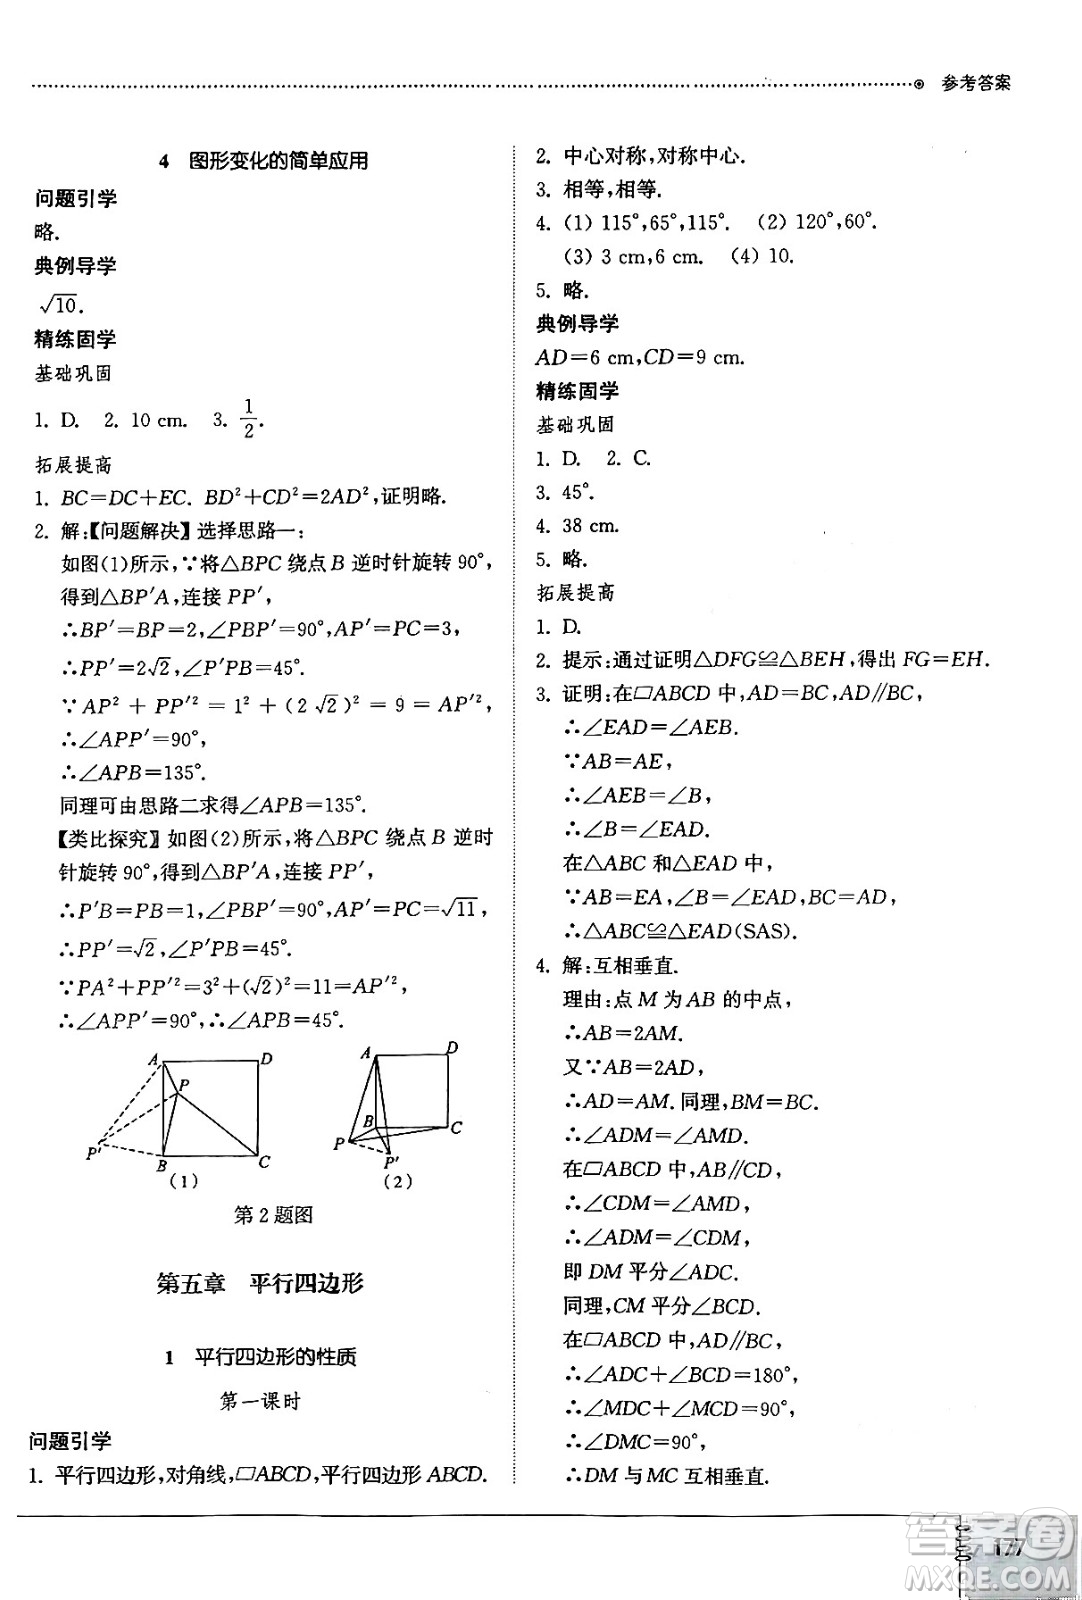 参考答案
4 图形变化的简单应用
问题引学
略.
典例导学
√10.
精练固学
基础巩固
1. D. 2. 10 cm. 3. 1/2.
拓展提高
1. BC=DC+EC. BD²+CD²=2AD²,证明略.
2. 解:【问题解决】选择思路一:
如图(1)所示,∵将△BPC 绕点 B 逆时针旋转 90°,
得到△BP′A,连接 PP′,
∴BP′=BP=2,∠PBP′=90°,AP′=PC=3,
∴PP′=2√2,∠BPP′=45°.
∵AP²+PP′²=1²+(2√2)²=9=AP′²,
∴∠APP′=90°,
∴∠APB=135°.
同理可由思路二求得∠APB=135°.
【类比探究】如图(2)所示,将△BPC 绕点 B 逆时
针旋转 90°,得到△BP′A,连接 PP′,
∴P′B=PB=1,∠PBP′=90°,AP′=PC=√11,
∴PP′=√2,∠P′PB=45°.
∵PA²+PP′²=3²+(√2)²=11=AP′²,
∴∠APP′=90°,∴∠APB=45°.
A D P P′ B C
(1)
A D B C P P′
(2)
第2题图
第五章 平行四边形
1 平行四边形的性质
第一课时
问题引学
1. 平行四边形,对角线,▱ABCD,平行四边形 ABCD.
2. 中心对称,对称中心.
3. 相等,相等.
4. (1) 115°,65°,115°. (2) 120°,60°.
(3) 3 cm,6 cm. (4) 10.
5. 略.
典例导学
AD=6 cm,CD=9 cm.
精练固学
基础巩固
1. D. 2. C.
3. 45°.
4. 38 cm.
5. 略.
拓展提高
1. D.
2. 提示:通过证明△DFG≌△BEH,得出 FG=EH.
3. 证明:在▱ABCD 中,AD=BC,AD∥BC,
∴∠EAD=∠AEB.
∵AB=AE,
∴∠AEB=∠B,
∴∠B=∠EAD.
在△ABC 和△EAD 中,
∵AB=EA,∠B=∠EAD,BC=AD,
∴△ABC≌△EAD(SAS).
4. 解:互相垂直.
理由:点 M 为 AB 的中点,
∴AB=2AM.
又∵AB=2AD,
∴AD=AM.同理,BM=BC.
∴∠ADM=∠AMD.
在▱ABCD 中,AB∥CD,
∴∠CDM=∠AMD,
∴∠ADM=∠CDM.
即 DM 平分∠ADC.
同理,CM 平分∠BCD.
在▱ABCD 中,AD∥BC,
∴∠ADC+∠BCD=180°,
∴∠MDC+∠MCD=90°,
∴∠DMC=90°,
∴DM 与 MC 互相垂直.
177
答案圈
MXQE.COM